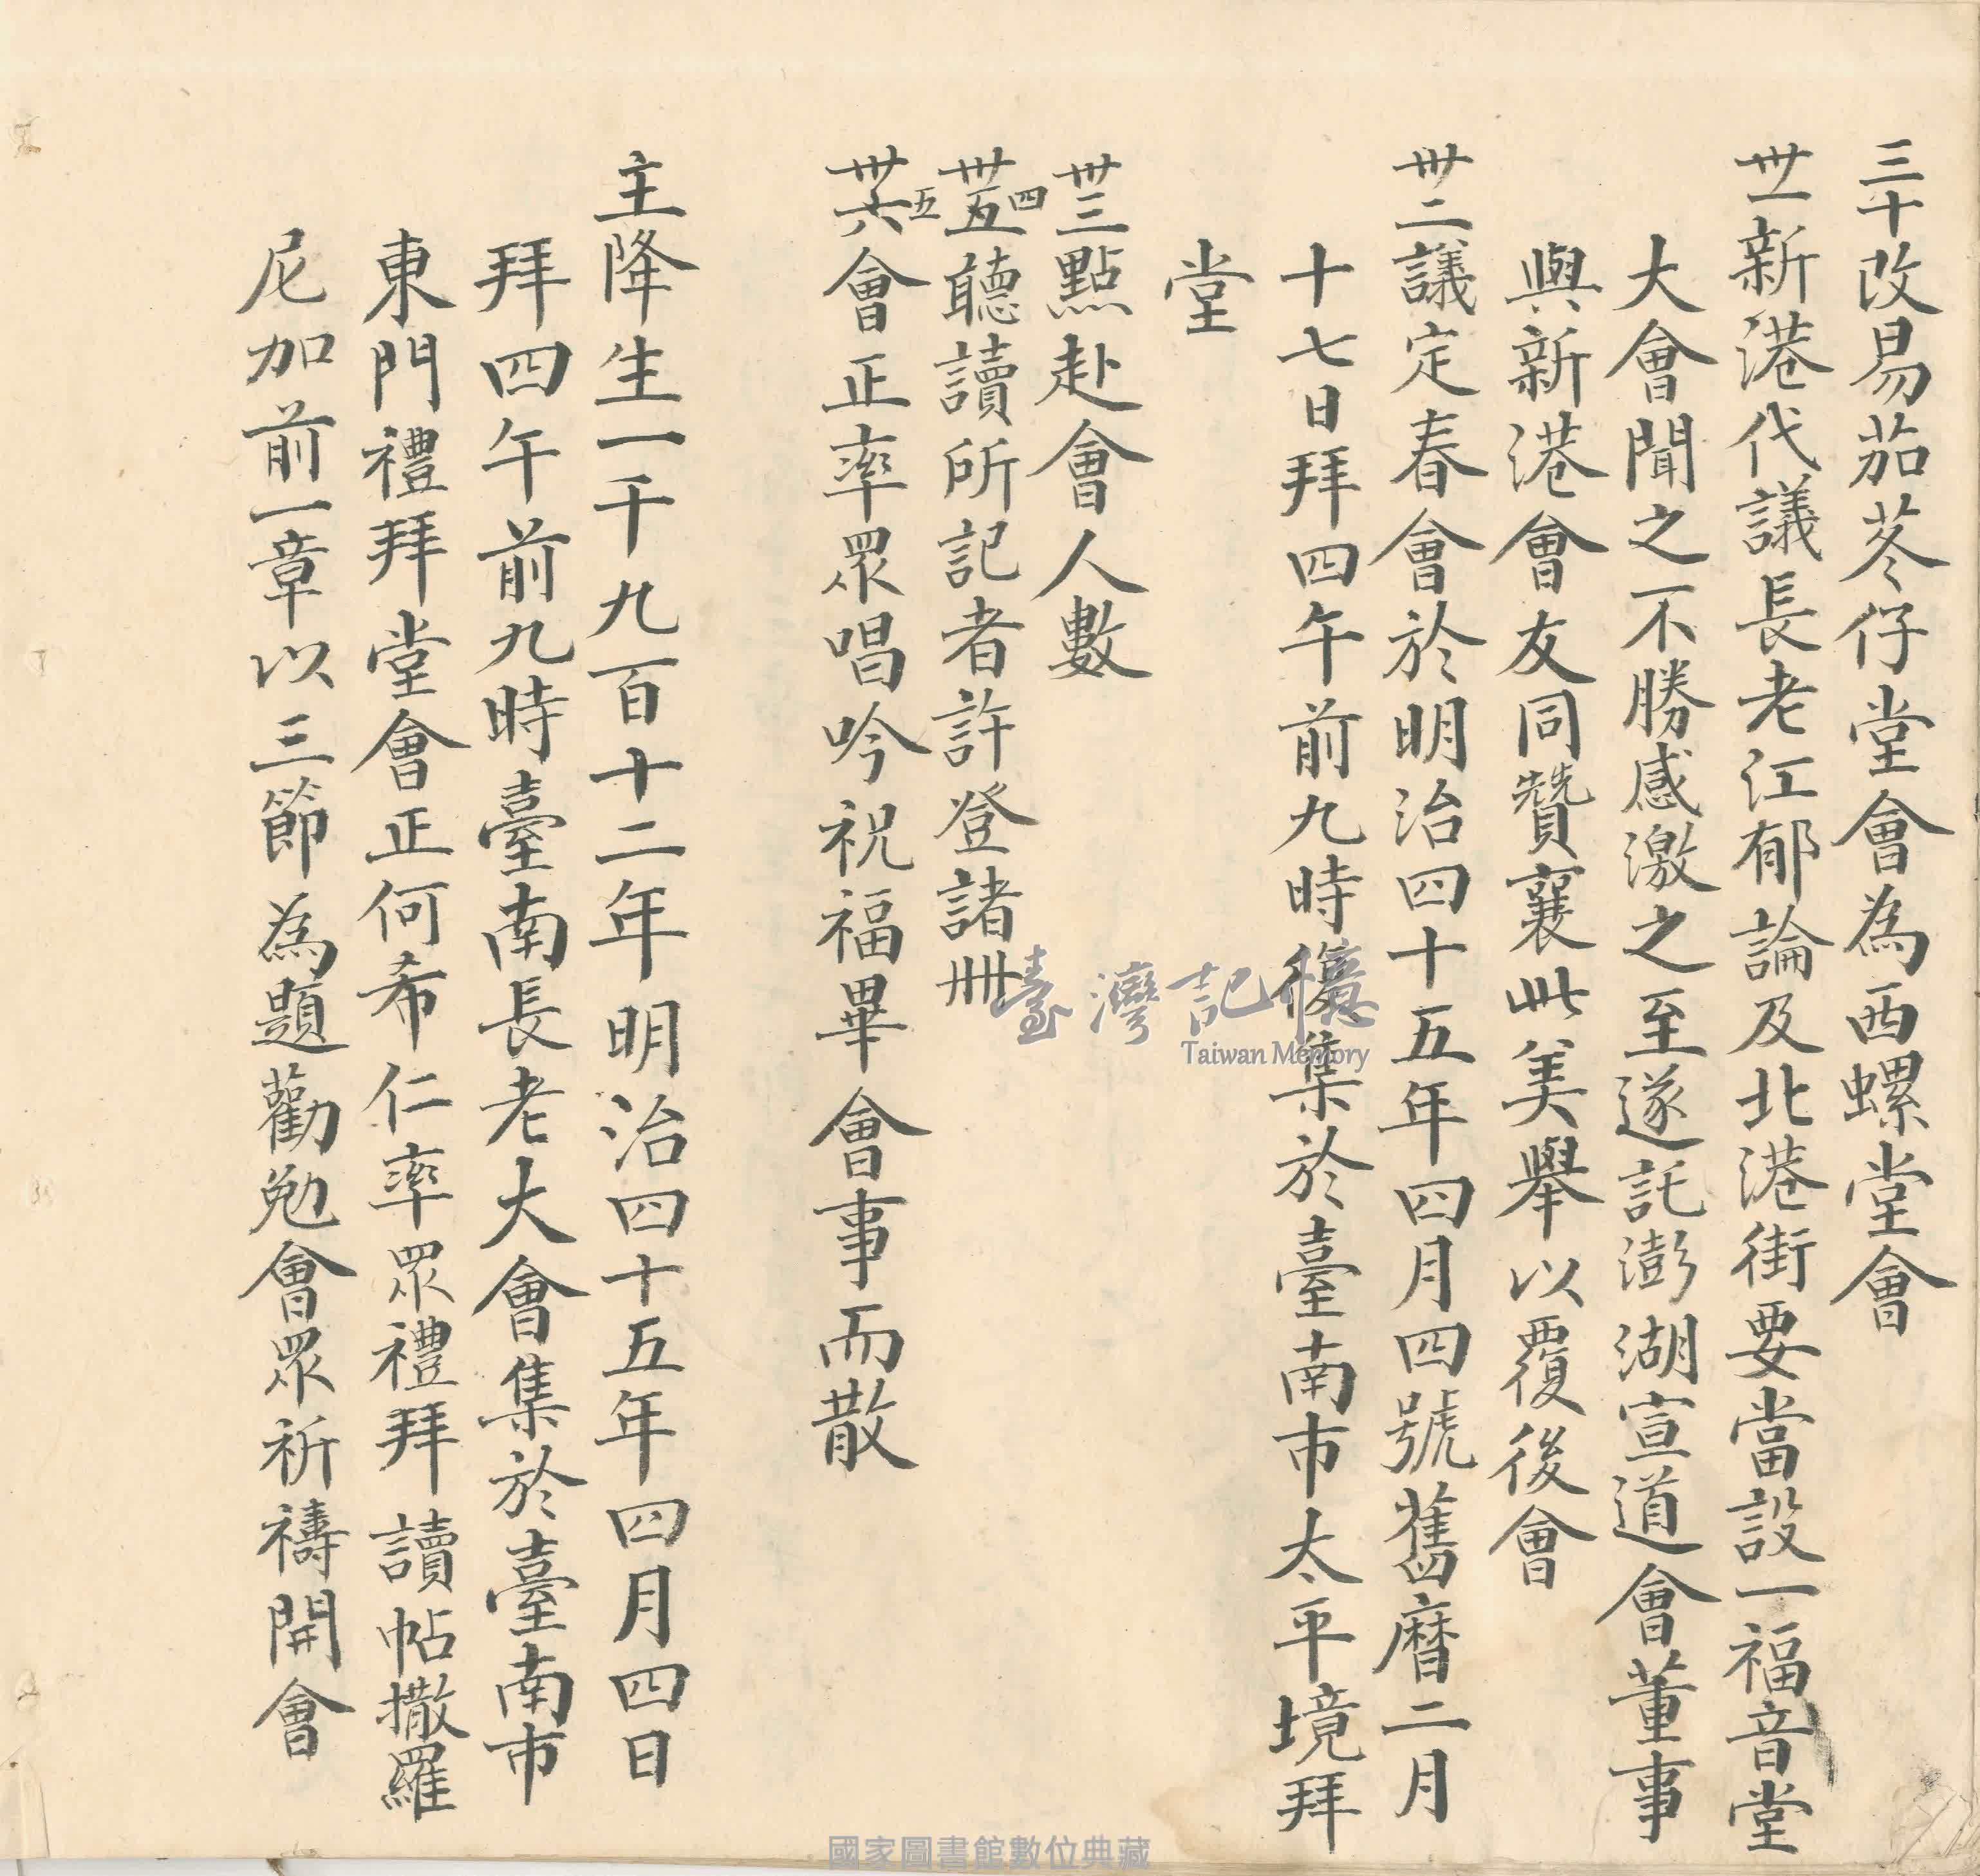 三十改易茄苳仔堂會為西螺堂會
卅一新港代議長老江郁論及北港街要當設一福音堂
大會聞之不勝感激之至遂託澎湖宣道會董事
與新港會友同贊襄此美舉以覆後會
卅二議定春會於明治四十五年四月四號舊曆二月
十七日拜四午前九時復集於臺南市太平境拜
堂
卅三點赴會人數
卅五四聽讀所記者許登諸冊
卅六五會正率眾唱吟祝福畢會事而散
主降生一千九百十二年明治四十五年四月四日
拜四午前九時臺南長老大會集於臺南市
東門禮拜堂會正何希仁率眾禮拜讀帖撒羅
尼加前一章以三節為題勸勉會眾祈禱開會
臺灣記憶
Taiwan Memory
國家圖書館數位典藏